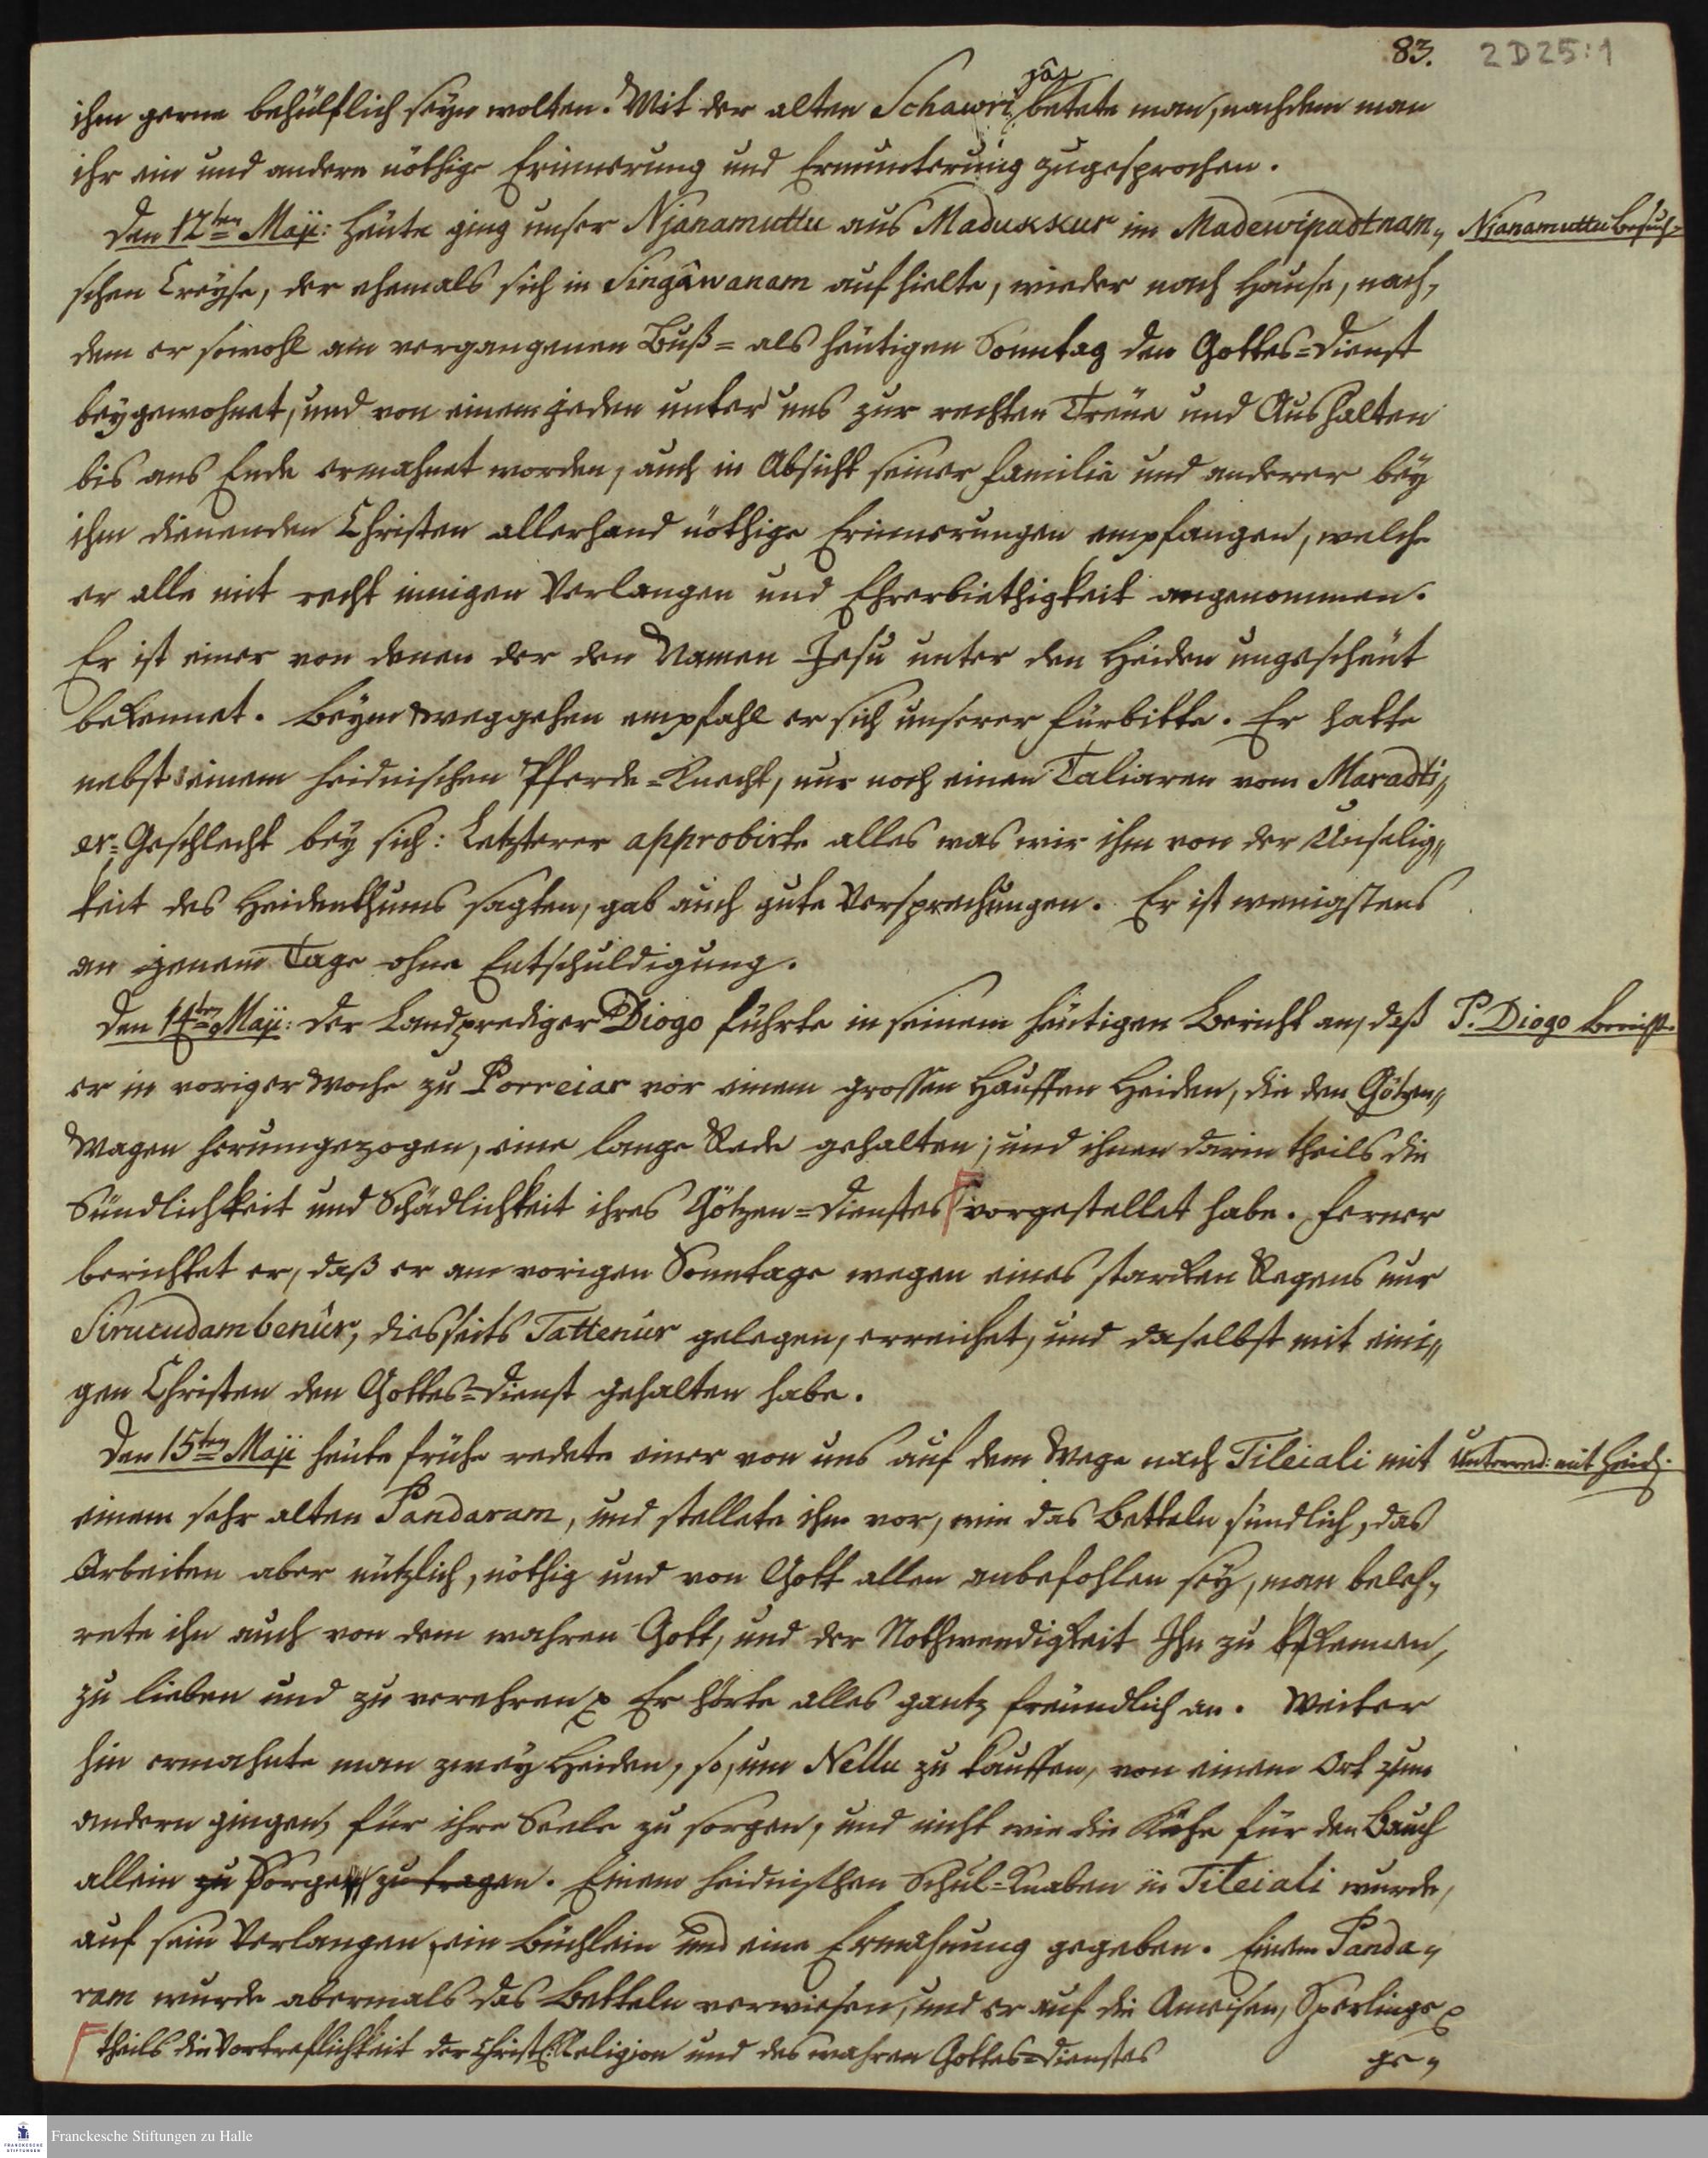 83. 2 D 25:1
ihm gerne behülflich seyn wolten. Mit der alten Schawri jäi betete man, nachdem man
ihr ein und andere nöthige Erinnerung und Ermunterung zugesprochen.
Den 12ten Maji: Heute ging unser Njanamuttu aus Madukkur im Madewipadtnam-
Njanamuttu Besuch.
schen Creyse, der ehemals sich in Singâwanam aufhielte, wieder nach Hause, nach-
dem er sowohl am vergangenen Buß- als heutigen Sonntag den Gottes-Dienst
beygewohnet, und von einem jeden unter uns zur rechten Treue und Aushalten
bis ans Ende ermahnet worden, auch in Absicht seiner Familie und anderer bey
ihm dienenden Christen allerhand nöthige Erinnerungen empfangen, welche
er alle mit recht innigen Verlangen und Ehrerbiethigkeit angenommen.
Er ist einer von denen der den Namen Jesu unter den Heiden ungescheut
bekennet. Beym weggehen empfahl er sich unserer Fürbitte. Er hatte
nebst einem heidnischen Pferde-Knecht, nur noch einen Taliaren vom Maradti-
er-Geschlecht bey sich: Letzterer approbirte alles was wir ihm von der Unselig-
keit des Heidenthums sagten, gab auch gute Versprechungen. Er ist wenigstens
an jenem Tage ohne Entschuldigung.
Den 14ten Maji: Der Landprediger Diogo führte in seinem heutigen Bericht an, daß
P. Diogo Bericht.
er in voriger Woche zu Porreiar vor einem grossen Hauffen Heiden, die den Götzen-
Wagen herumgezogen, eine lange Rede gehalten; und ihnen darin theils die
Sündlichkeit und Schädlichkeit ihres Götzen-Dienstes F vorgestellet habe. Ferner
berichtet er, daß er am vorigen Sonntage wegen eines starcken Regens nur
Sirucudambenûr, diesseits Tattenûr gelegen, erreichet, und daselbst mit eini-
gen Christen den Gottes-Dienst gehalten habe.
Den 15ten Maji heute frühe redete einer von uns auf dem Wege nach Tileiali mit
Unterred: mit Heid.
einem sehr alten Pandaram, und stellete ihm vor, wie das Betteln sündlich, das
Arbeiten aber nützlich, nöthig und von Gott allen anbefohlen sey, man beleh-
rete ihn auch von dem wahren Gott, und der Nothwendigkeit Ihn zu kennen,
zu lieben und zu verehren p Er hörte alles gantz freundlich an. Weiter
hin ermahnte man zwey Heiden, so, um Nellu zu kauffen, von einem Ort zum
andern gingen, für ihre Seele zu sorgen, und nicht wie die Kühe für den Bauch
allein zu Sorgen zu tragen. Einem heidnischen Schul-Knaben in Tileiali wurde,
auf sein Verlangen, ein Büchlein und eine Ermahnung gegeben. Einem Panda-
ram wurde abermals das Betteln verwiesen, und er auf die Ameisen, Sperlinge p
F theils die Vortreflichkeit der Christl: Religion und des wahren Gottes-Dienstes
ge-
Franckesche Stiftungen zu Halle